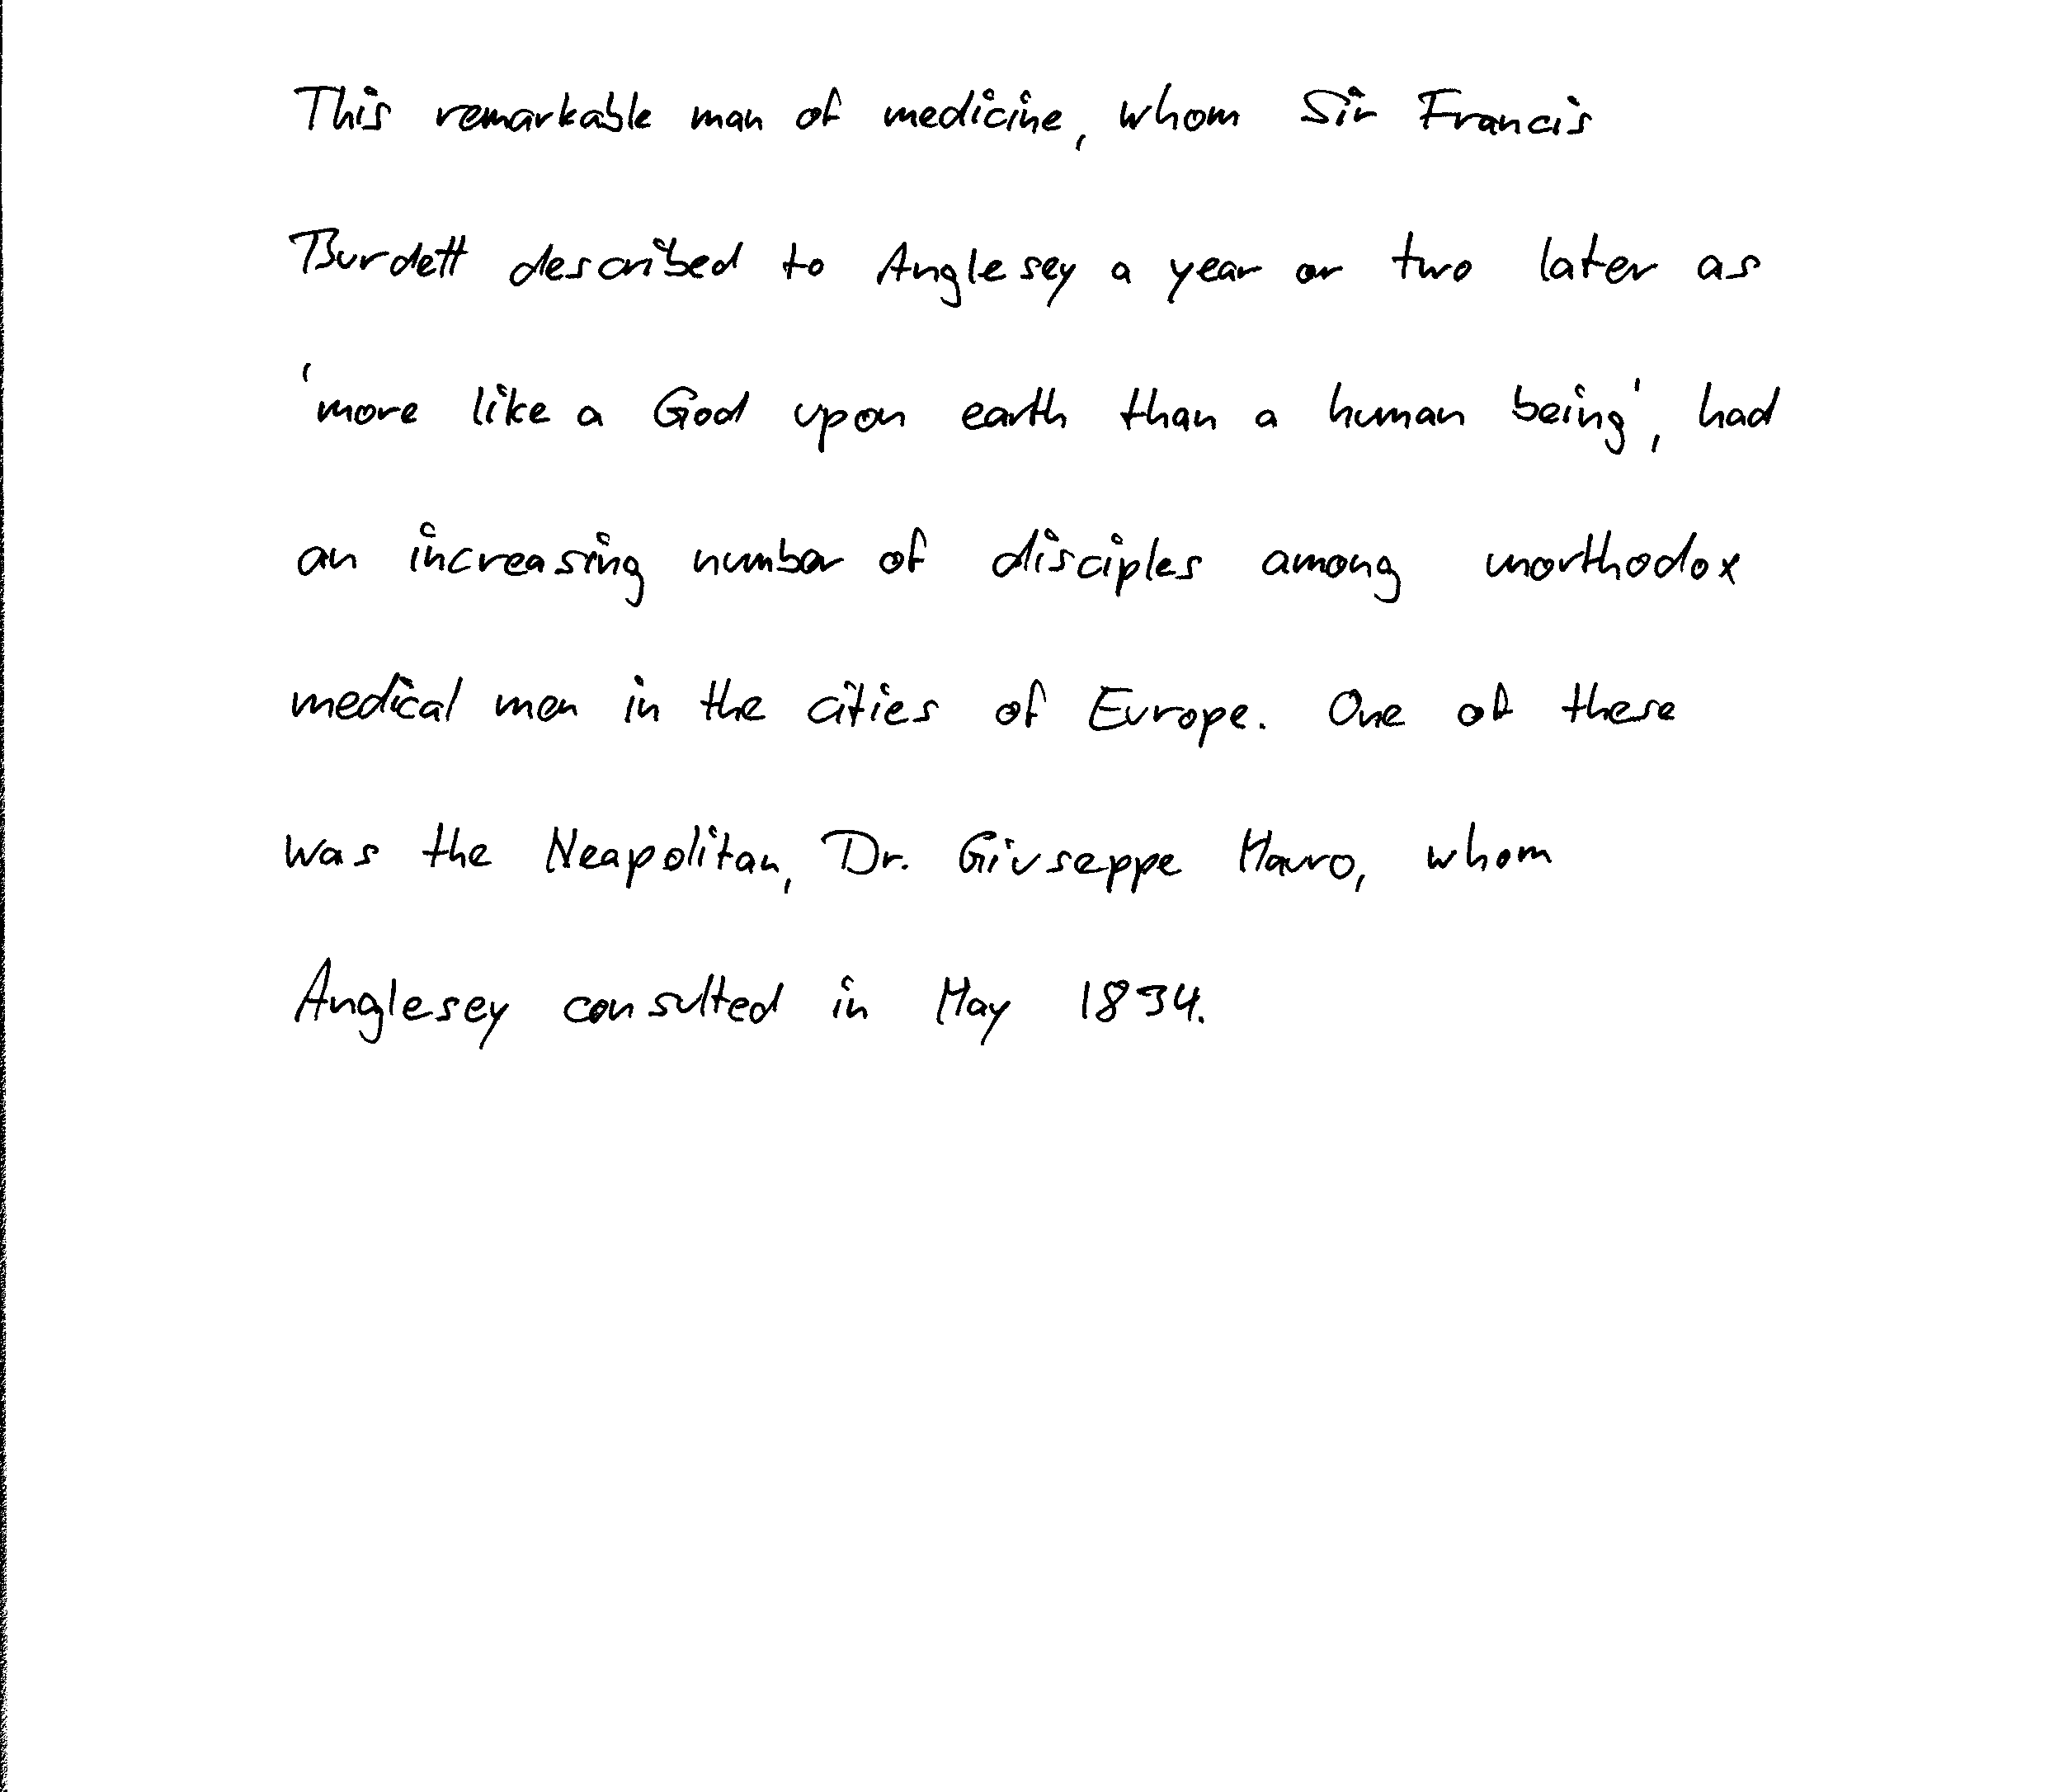 This remarkable man of medicine, whom Sir Francis
Burdett described to Anglesey a year or two later as
'more like a God upon earth than a human being', had
an increasing number of disciples among unorthodox
medical men in the cities of Europe. One of these
was the Neapolitan, Dr. Giuseppe Mauro, whom
Anglesey consulted in May 1834.